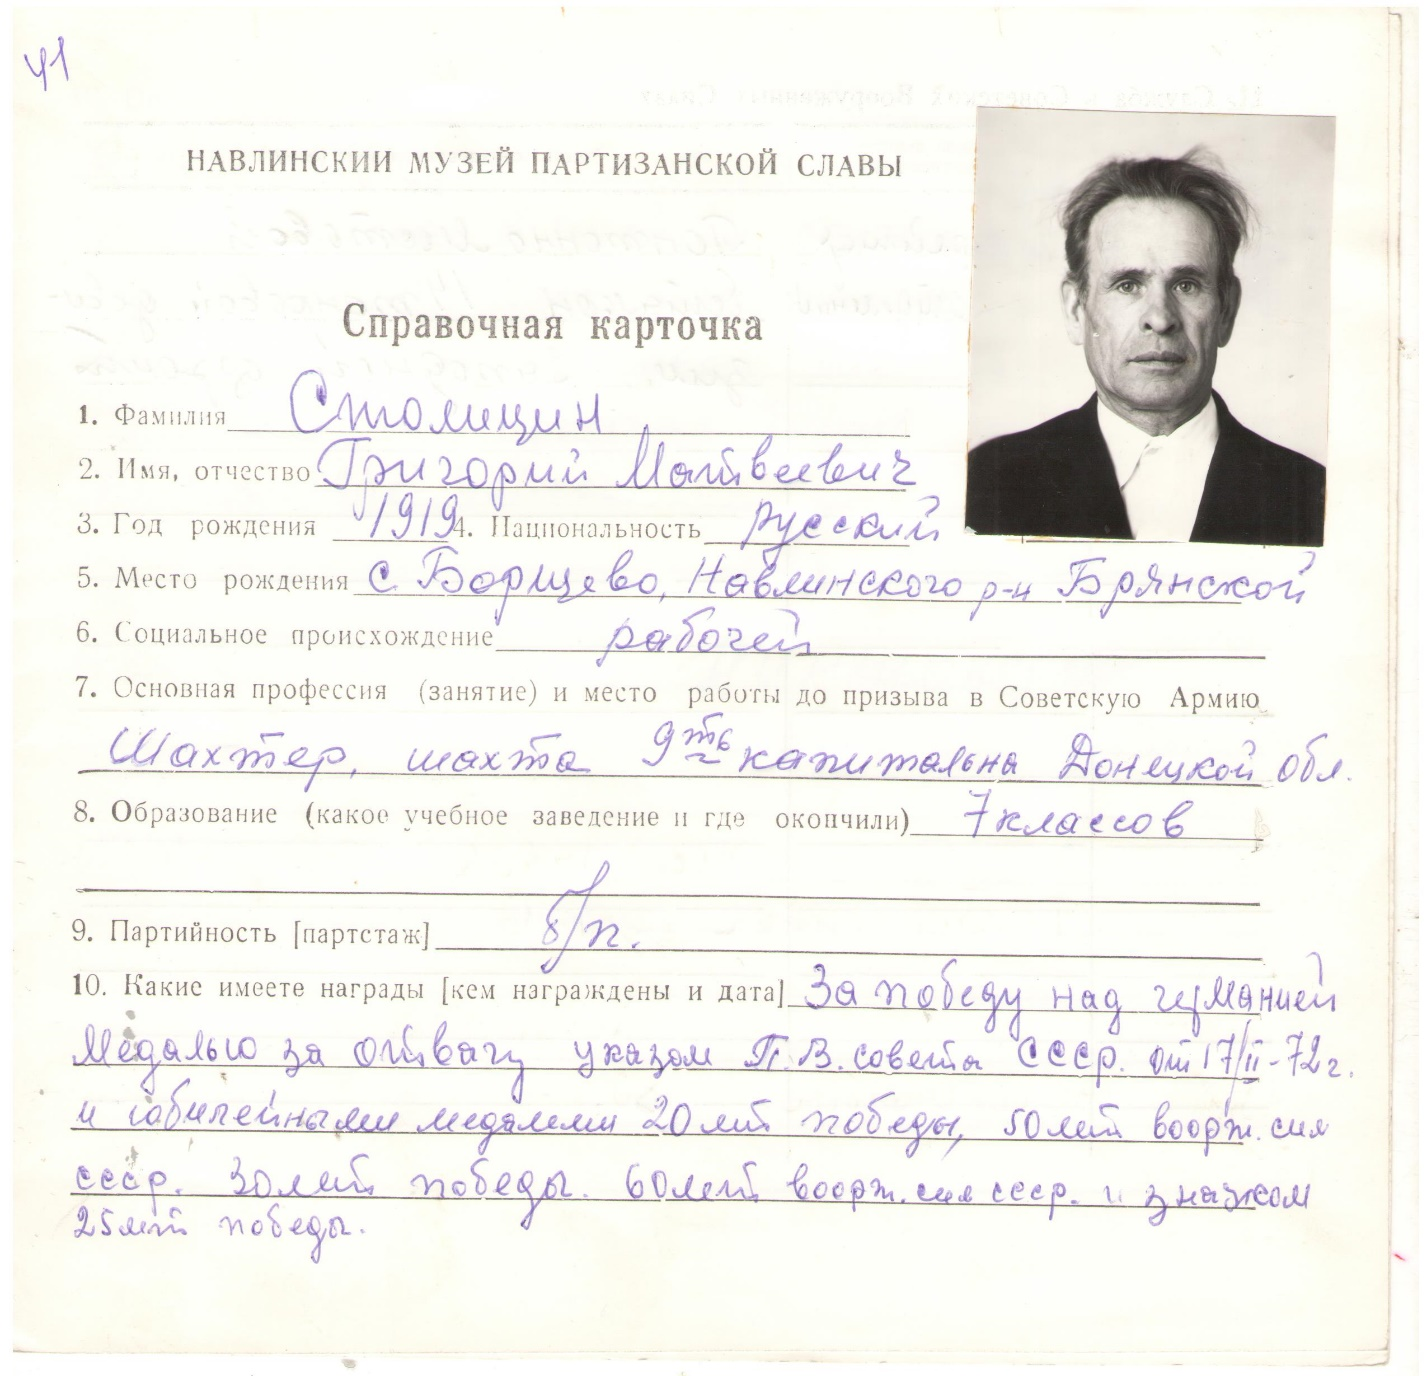 41
НАВЛИНСКИИ МУЗЕЙ ПАРТИЗАНСКОЙ СЛАВЫ
Справочная карточка
1. Фамилия Столицин
2. Имя, отчество Григорий Матвеевич
3. Год рождения 1919 4. Национальность русский
5. Место рождения с. Борщево, Навлинского р-н Брянской
6. Социальное происхождение рабочей
7. Основная профессия (занятие) и место работы до призыва в Советскую Армию
Шахтер, шахта 9ть капитальна Донецкой обл.
8. Образование (какое учебное заведение и где окончили) 7 классов
9. Партийность [партстаж] б/п.
10. Какие имеете награды [кем награждены и дата] За победу над германией
Медалью за отвагу указом П.В. совета СССР. от 17/II-72 г.
и юбилейными медалеми 20 лет победы, 50 лет воорж. сил
ссср. 30 лет победы. 60 лет воорж. сил ссср. и значком
25 лет победы.